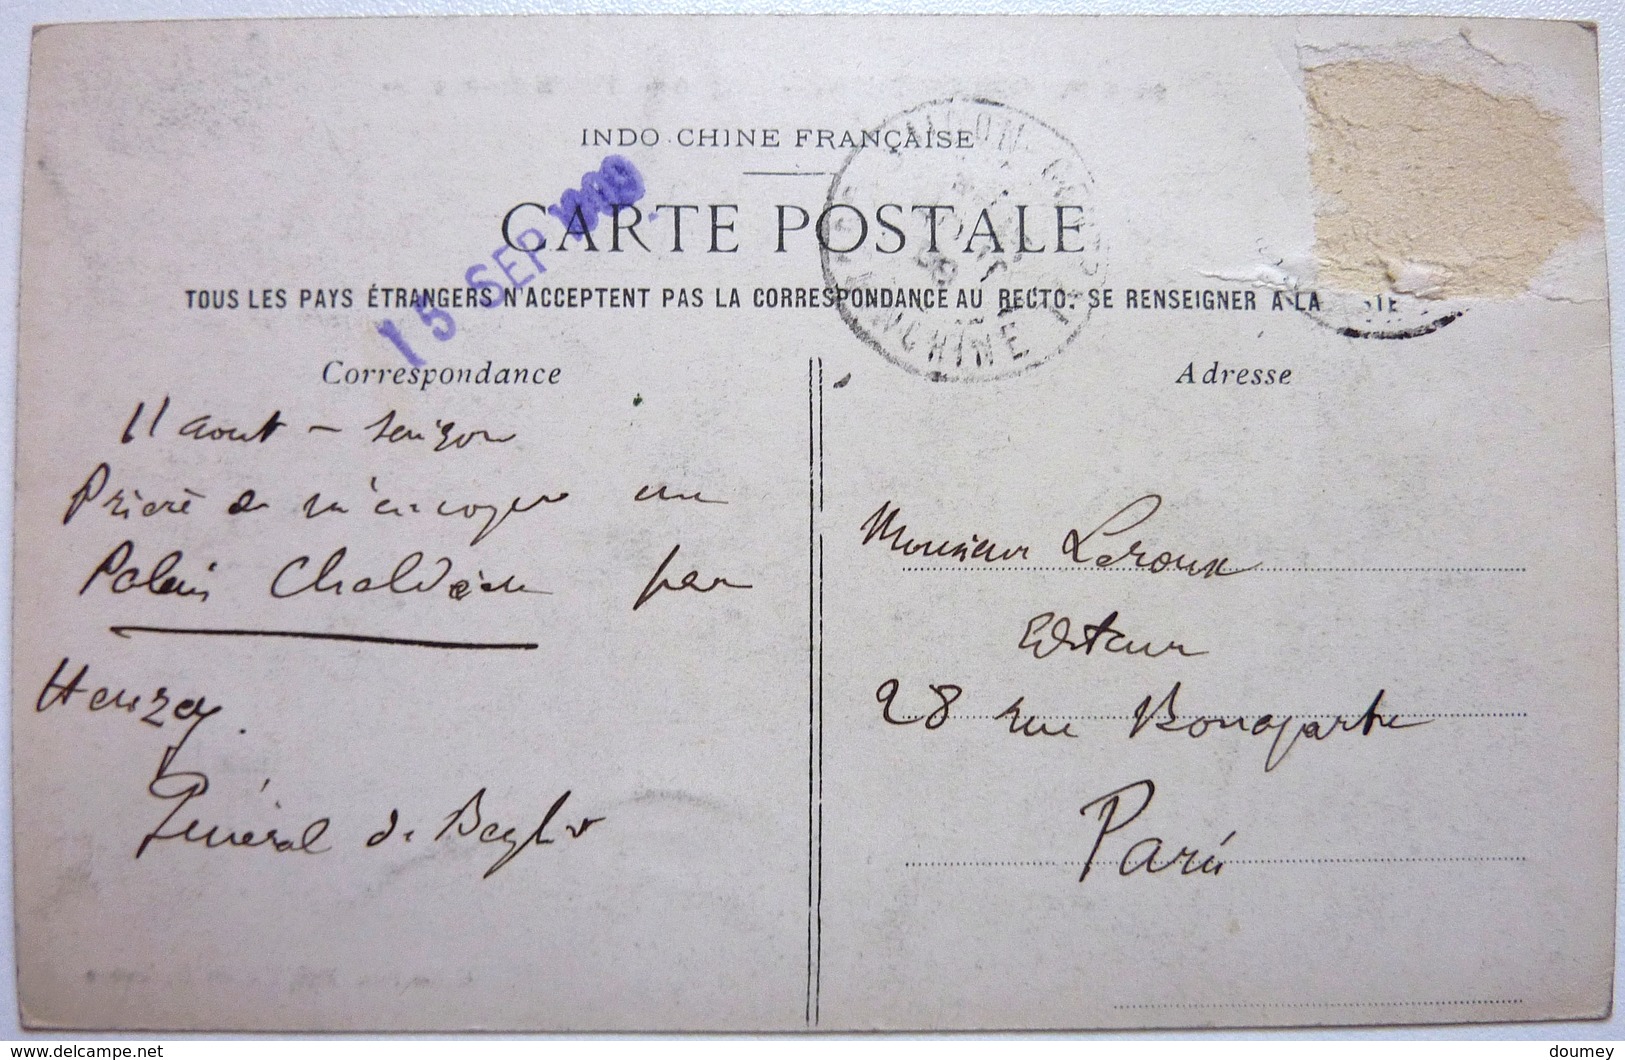 INDO-CHINE FRANÇAISE
CARTE POSTALE
15 SEP 1909
TOUS LES PAYS ÉTRANGERS N'ACCEPTENT PAS LA CORRESPONDANCE AU RECTO. SE RENSEIGNER A LA
Correspondance
11 aout – Saigon
Prière de m'envoyer un
Palais Chaldéen par
Heuzey.
Général de Beylié
Adresse
Monsieur Leroux
Editeur
28 rue Bonaparte
Paris
delcampe.net
doumey